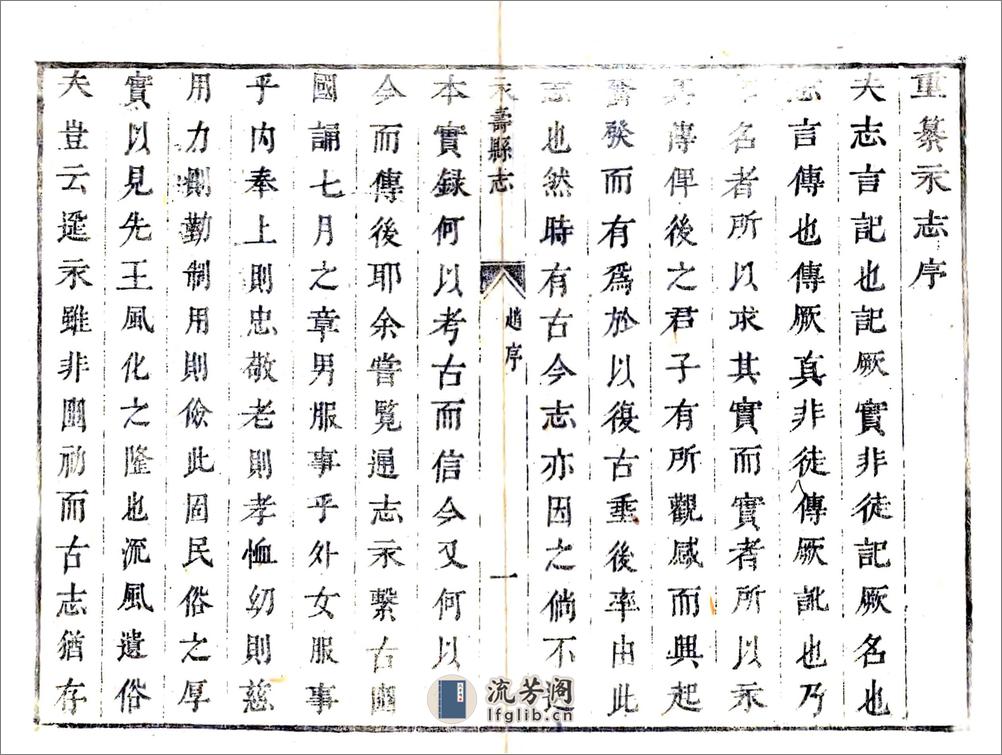 重纂永志序
夫志言記也記厥實非徒記厥名也
志言傳也傳厥真非徒傳厥訛也乃
名者所以求其實而實者所以永
其傳俾後之君子有所觀感而興起
奮發而有爲於以復古垂後率由此
志也然時有古今志亦因之倘不
永壽縣志
趙序
一
本實録何以考古而信今又何以
今而傳後耶余嘗覽通志永繫古豳
國誦七月之章男服事乎外女服事
乎内奉上則忠敬老則孝恤幼則慈
用力則勤制用則儉此固民俗之厚
實以見先王風化之隆也流風遺俗
夫豈云遥永雖非豳初而古志猶存
流芳阁
lfglib.cn